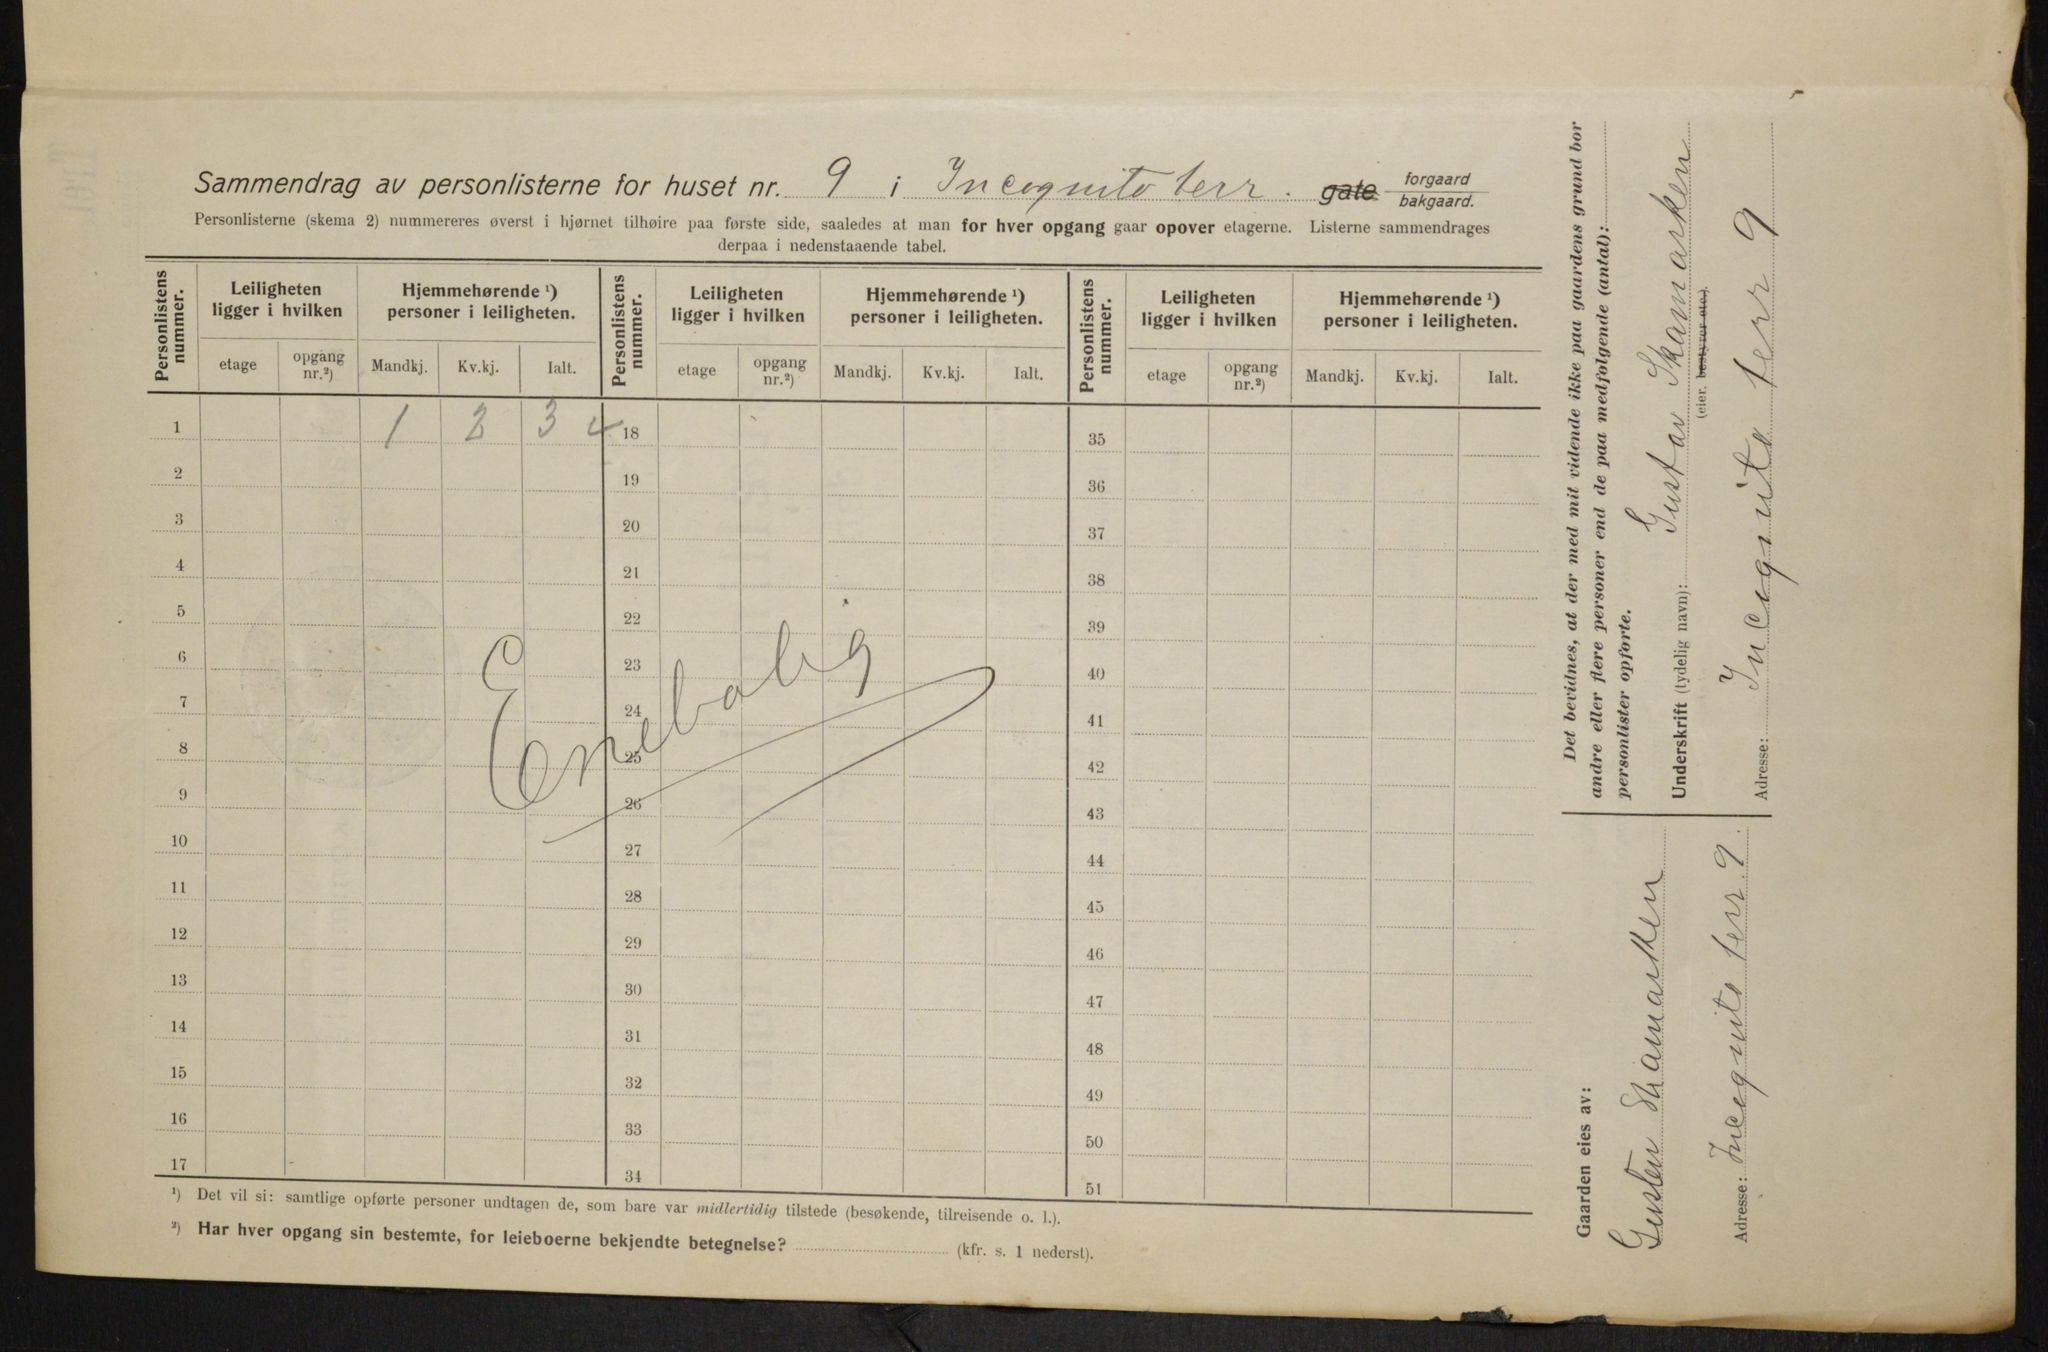 Sammendrag av personlisterne for huset nr. 9 i Incognito terr. gate forgaard bakgaard.
Personlisterne (skema 2) nummereres øverst i hjørnet tilhøire paa første side, saaledes at man for hver opgang gaar opover etagerne. Listerne sammendrages
derpaa i nedenstaaende tabel.
Personlistens nummer. Leiligheten ligger i hvilken Hjemmehørende ¹) personer i leiligheten. Personlistens nummer. Leiligheten ligger i hvilken Hjemmehørende ¹) personer i leiligheten. Personlistens nummer. Leiligheten ligger i hvilken Hjemmehørende ¹) personer i leiligheten.
etage opgang nr.²) Mandkj. Kv.kj. Ialt. etage opgang nr.²) Mandkj. Kv.kj. Ialt. etage opgang nr.²) Mandkj. Kv.kj. Ialt.
1 1 2 3 4 18 35
2 19 36
3 20 37
4 21 38
5 22 39
6 23 40
7 24 41
8 25 42
9 26 43
10 27 44
11 28 45
12 29 46
13 30 47
14 31 48
15 32 49
16 33 50
17 34 51
Enebolig
¹) Det vil si: samtlige opførte personer undtagen de, som bare var midlertidig tilstede (besøkende, tilreisende o. l.).
²) Har hver opgang sin bestemte, for leieboerne bekjendte betegnelse? (kfr. s. 1 nederst).
Det bevidnes, at der med mit vidende ikke paa gaardens grund bor
andre eller flere personer end de paa medfølgende (antal):
personlister opførte.
Underskrift (tydelig navn): Gustav Skamarken
(eier, bestyrer etc.)
Adresse: Incognito terr 9
Gaarden eies av:
Skamarken
Adresse: Incognito terr. 9.